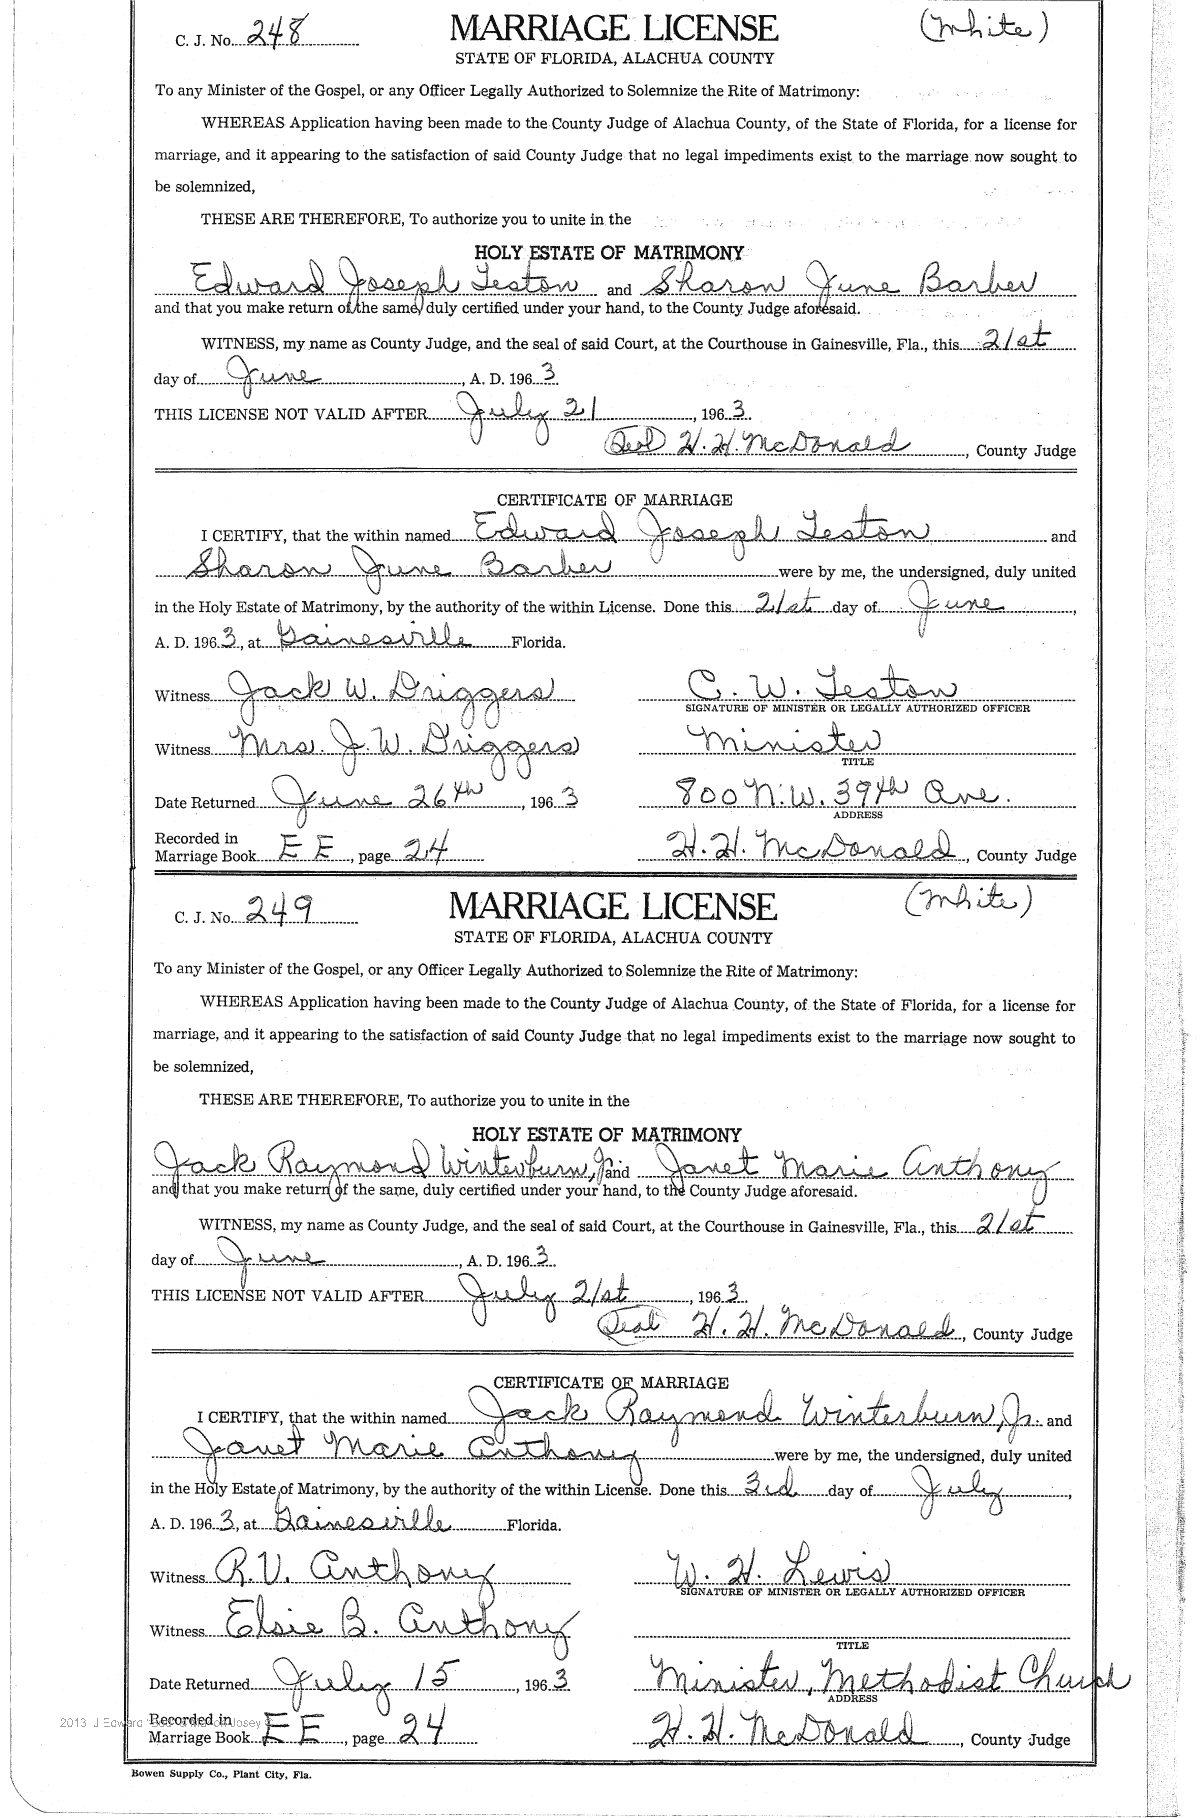 C. J. No. 248 MARRIAGE LICENSE (White)
STATE OF FLORIDA, ALACHUA COUNTY
To any Minister of the Gospel, or any Officer Legally Authorized to Solemnize the Rite of Matrimony:
WHEREAS Application having been made to the County Judge of Alachua County, of the State of Florida, for a license for
marriage, and it appearing to the satisfaction of said County Judge that no legal impediments exist to the marriage now sought to
be solemnized,
THESE ARE THEREFORE, To authorize you to unite in the
HOLY ESTATE OF MATRIMONY
Edward Joseph Teston and Sharon June Barber
and that you make return of the same, duly certified under your hand, to the County Judge aforesaid.
WITNESS, my name as County Judge, and the seal of said Court, at the Courthouse in Gainesville, Fla., this 21st
day of June, A. D. 1963.
THIS LICENSE NOT VALID AFTER July 21, 1963.
(Seal) H. H. McDonald, County Judge
CERTIFICATE OF MARRIAGE
I CERTIFY, that the within named Edward Joseph Teston and
Sharon June Barber were by me, the undersigned, duly united
in the Holy Estate of Matrimony, by the authority of the within License. Done this 21st day of June,
A. D. 1963, at Gainesville Florida.
Witness Jack W. Driggers C. W. Teston
SIGNATURE OF MINISTER OR LEGALLY AUTHORIZED OFFICER
Witness Mrs. J. W. Driggers Minister
TITLE
Date Returned June 26th, 1963 800 N.W. 39th Ave.
ADDRESS
Recorded in
Marriage Book EE, page 24 H. H. McDonald, County Judge
C. J. No. 249 MARRIAGE LICENSE (White)
STATE OF FLORIDA, ALACHUA COUNTY
To any Minister of the Gospel, or any Officer Legally Authorized to Solemnize the Rite of Matrimony:
WHEREAS Application having been made to the County Judge of Alachua County, of the State of Florida, for a license for
marriage, and it appearing to the satisfaction of said County Judge that no legal impediments exist to the marriage now sought to
be solemnized,
THESE ARE THEREFORE, To authorize you to unite in the
HOLY ESTATE OF MATRIMONY
Jack Raymond Winterburn, Jr. and Janet Marie Anthony
and that you make return of the same, duly certified under your hand, to the County Judge aforesaid.
WITNESS, my name as County Judge, and the seal of said Court, at the Courthouse in Gainesville, Fla., this 21st
day of June, A. D. 1963.
THIS LICENSE NOT VALID AFTER July 21st, 1963.
(Seal) H. H. McDonald, County Judge
CERTIFICATE OF MARRIAGE
I CERTIFY, that the within named Jack Raymond Winterburn, Jr. and
Janet Marie Anthony were by me, the undersigned, duly united
in the Holy Estate of Matrimony, by the authority of the within License. Done this 3rd day of July,
A. D. 1963, at Gainesville Florida.
Witness R. V. Anthony W. H. Lewis
SIGNATURE OF MINISTER OR LEGALLY AUTHORIZED OFFICER
Witness Elsie B. Anthony
TITLE
Date Returned July 15, 1963 Minister, Methodist Church
ADDRESS
2013 J Edward Josey
Recorded in
Marriage Book EE, page 24 H. H. McDonald, County Judge
Bowen Supply Co., Plant City, Fla.